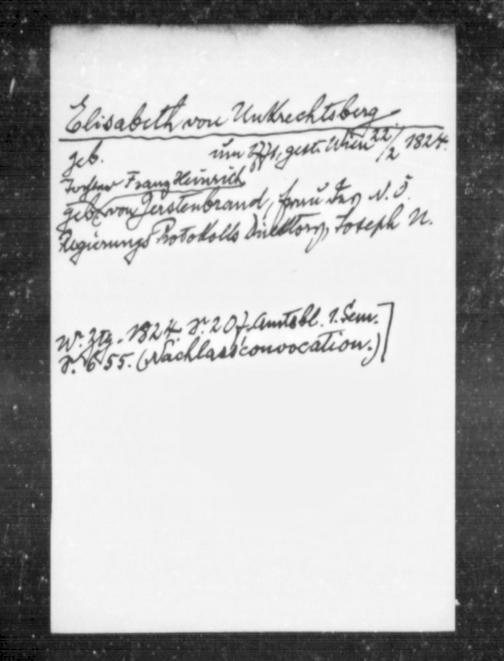 Elisabeth von Unkrechtsberg
geb. um 1771, gest. Wien 22/2 1824.
Tochter Franz Heinrich
geb. von Gerstenbrand, Frau des N. Ö.
Regierungs Protokolls Direktors, Joseph U.
W. Ztg. 1824 S. 207. Amtsbl. 1. Sem.
S. 655. (Nachlass convocation.)]